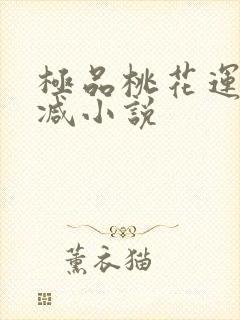 極品桃花運
减小說
薰衣猫